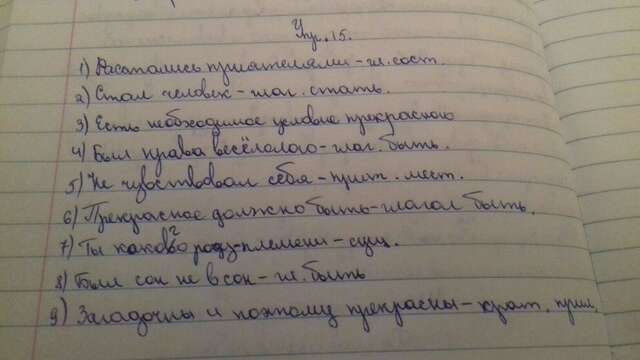 Упр. 15.
1) Расстались приятелями - гл. сост.
2) Стал человек - глаг. стать.
3) Есть необходимое условие прекрасного
4) Был нрава весёлого - глаг. быть.
5) Не чувствовал себя - прит. мест.
6) Прекрасное должно быть - глагол быть.
7) Ты каково роду-племени - сущ.
8) Был сон не в сон - гл. быть
9) Загадочны и поэтому прекрасны - крат. прил.